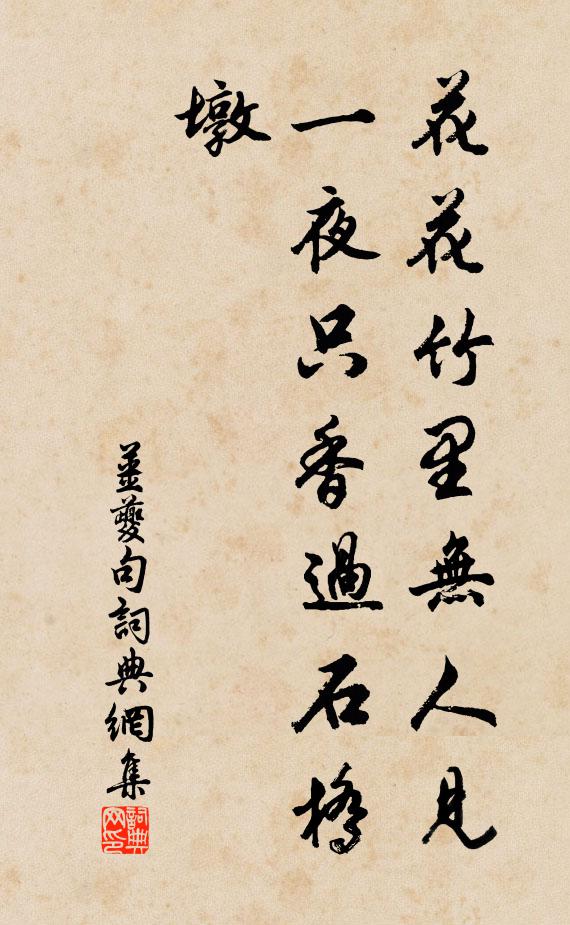 花花竹里無人見
一夜只香過石橋
墩
姜夔句詞典網集
詞典網印